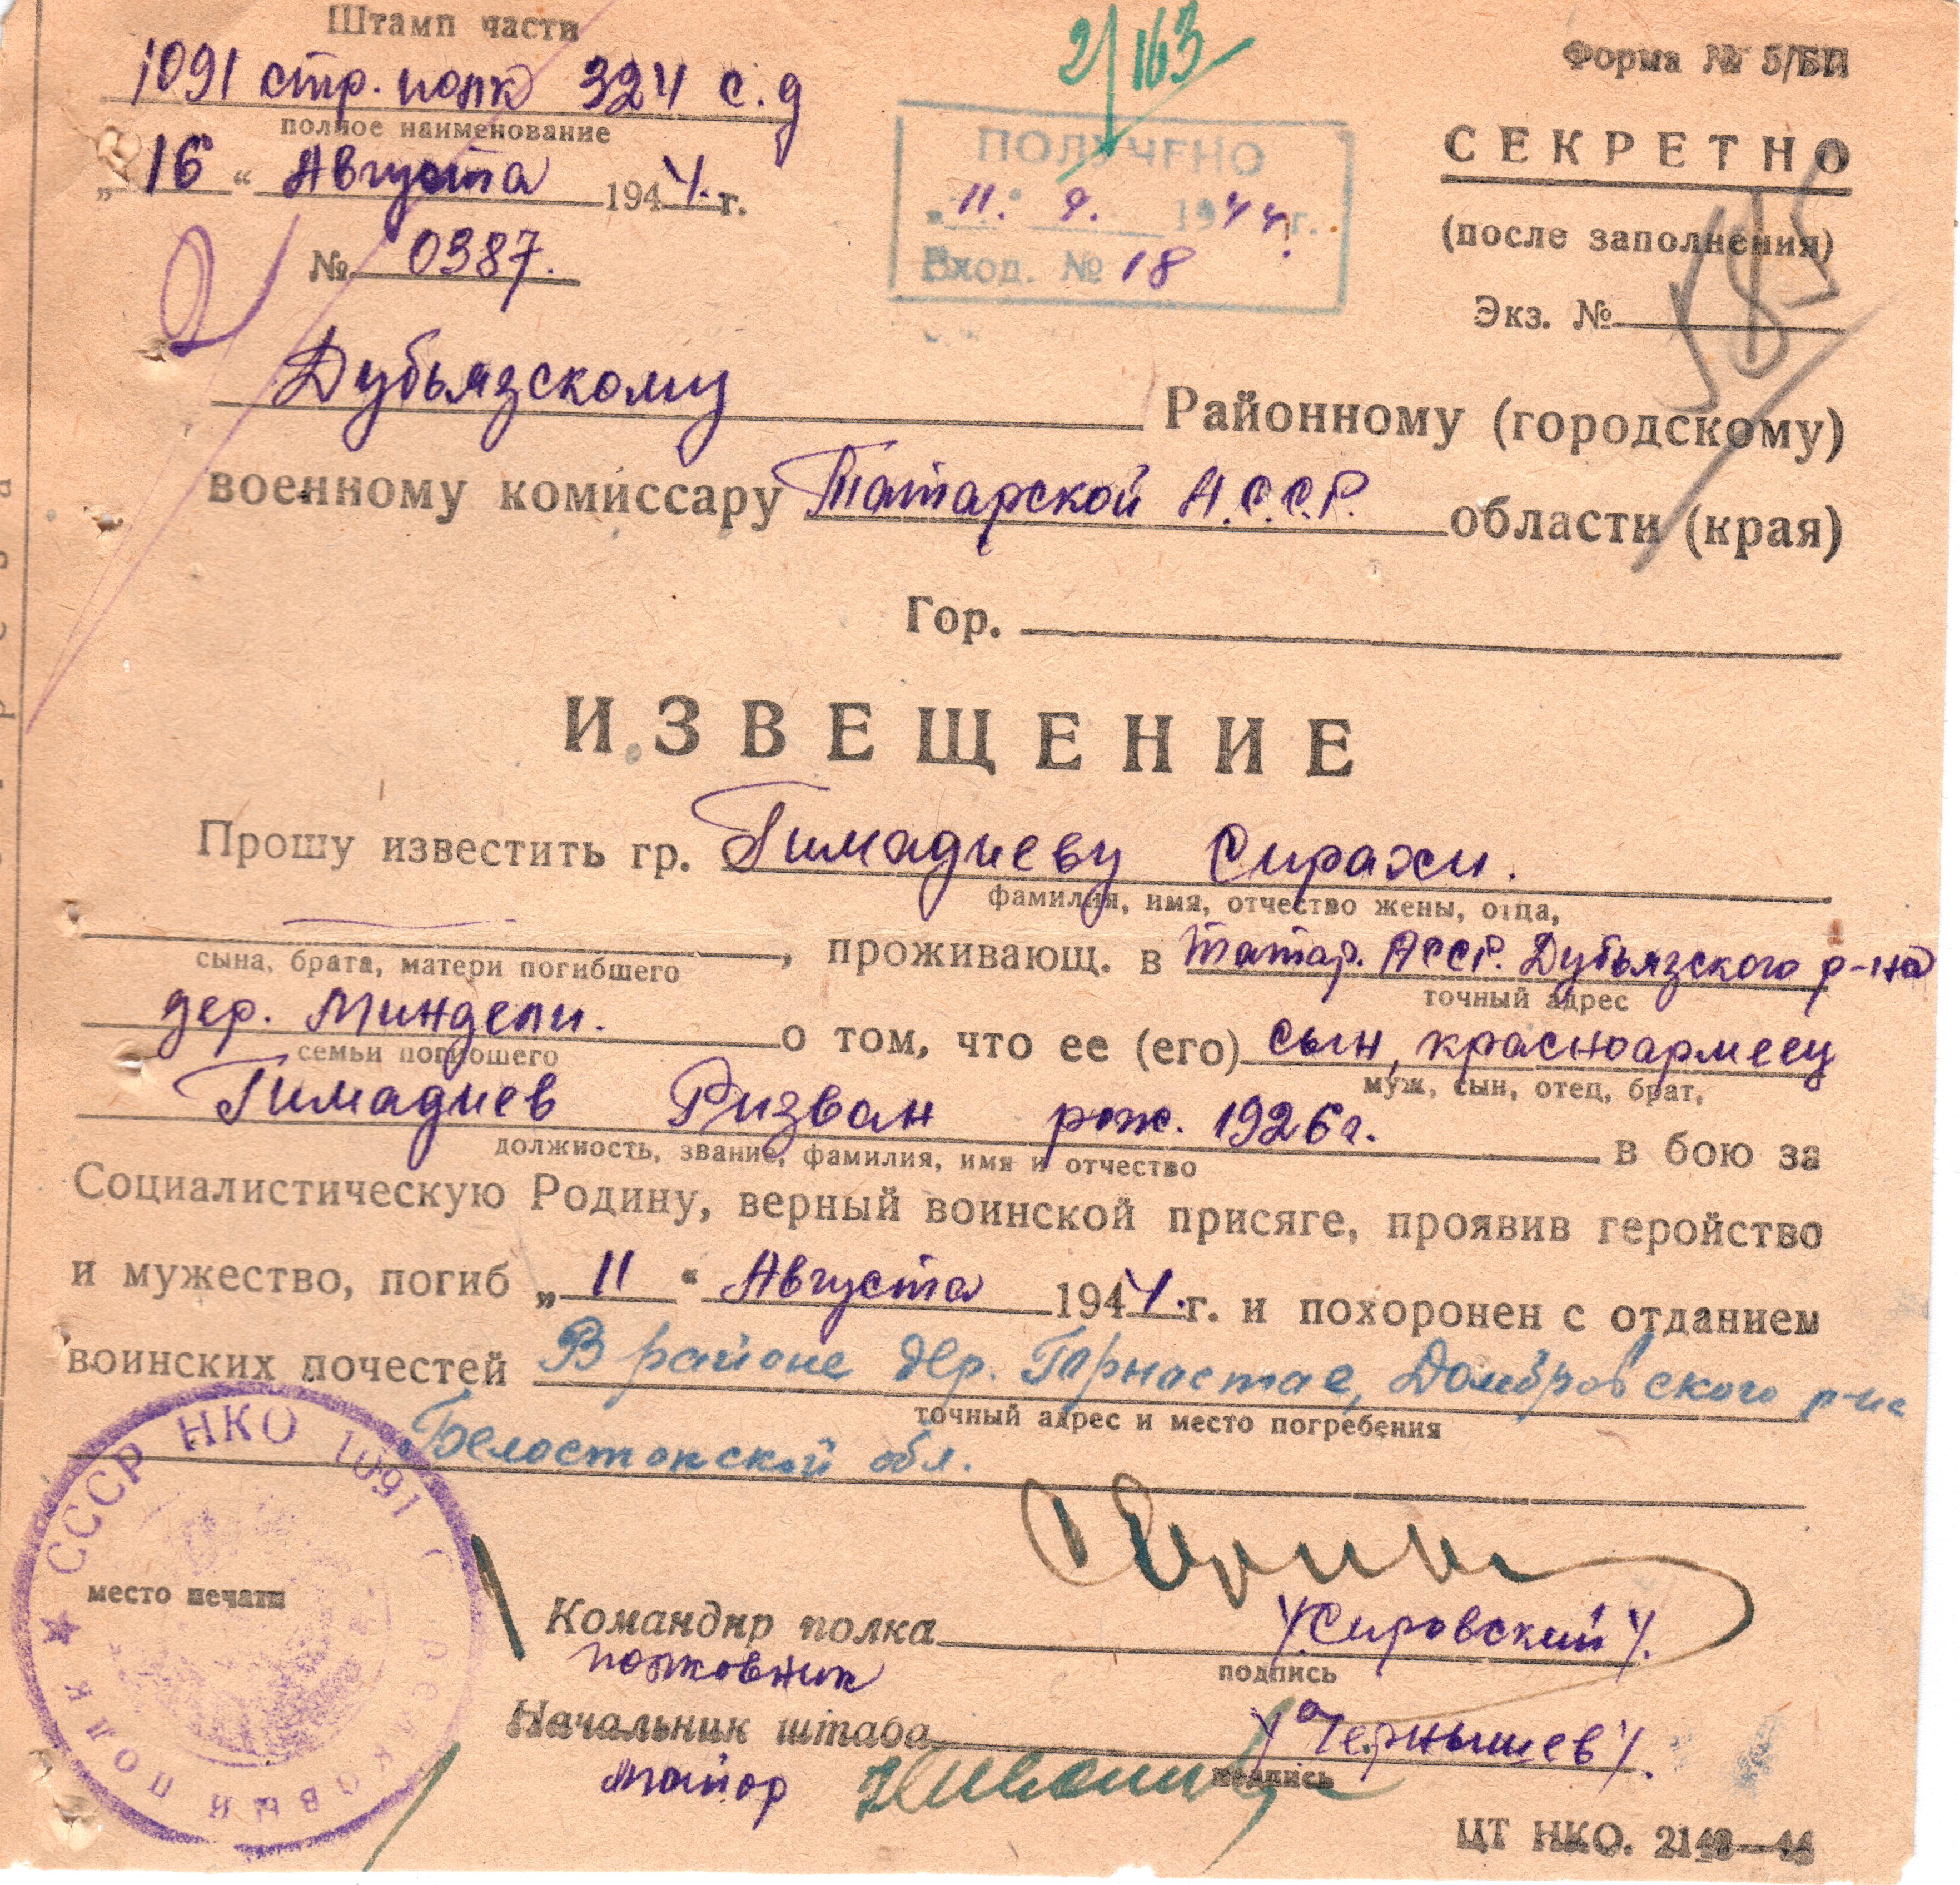 Штамп части
1091 стр. полк 324 с.д
полное наименование
„16“ Августа 1944. г.
№ 0387.
2/163
ПОЛУЧЕНО
„11.“ 9. 1944 г.
Вход. № 18
Форма № 5/БП
СЕКРЕТНО
(после заполнения)
Экз. №
585
Дубьязскому Районному (городскому)
военному комиссару Татарской А.С.С.Р. области (края)
Гор.
ИЗВЕЩЕНИЕ
Прошу известить гр. Гимадиеву Сиражи.
фамилия, имя, отчество жены, отца,
, проживающ. в Татар. АССР. Дубьязского р-на
сына, брата, матери погибшего точный адрес
дер. Миндели. о том, что ее (его) сын, красноармеец
семьи погибшего муж, сын, отец, брат,
Гимадиев Ризван рож. 1926 г. в бою за
должность, звание, фамилия, имя и отчество
Социалистическую Родину, верный воинской присяге, проявив геройство
и мужество, погиб „11“ Августа 1944. г. и похоронен с отданием
воинских почестей В районе дер. Гарнастае, Домбровского р-на
точный адрес и место погребения
Белостокской обл.
СССР НКО 1091 СТРЕЛКОВЫЙ ПОЛК
место печати
Командир полка /Сировский/.
полковник подпись
Начальник штаба /Чернышев/.
майор подпись
ЦТ НКО. 2148—44